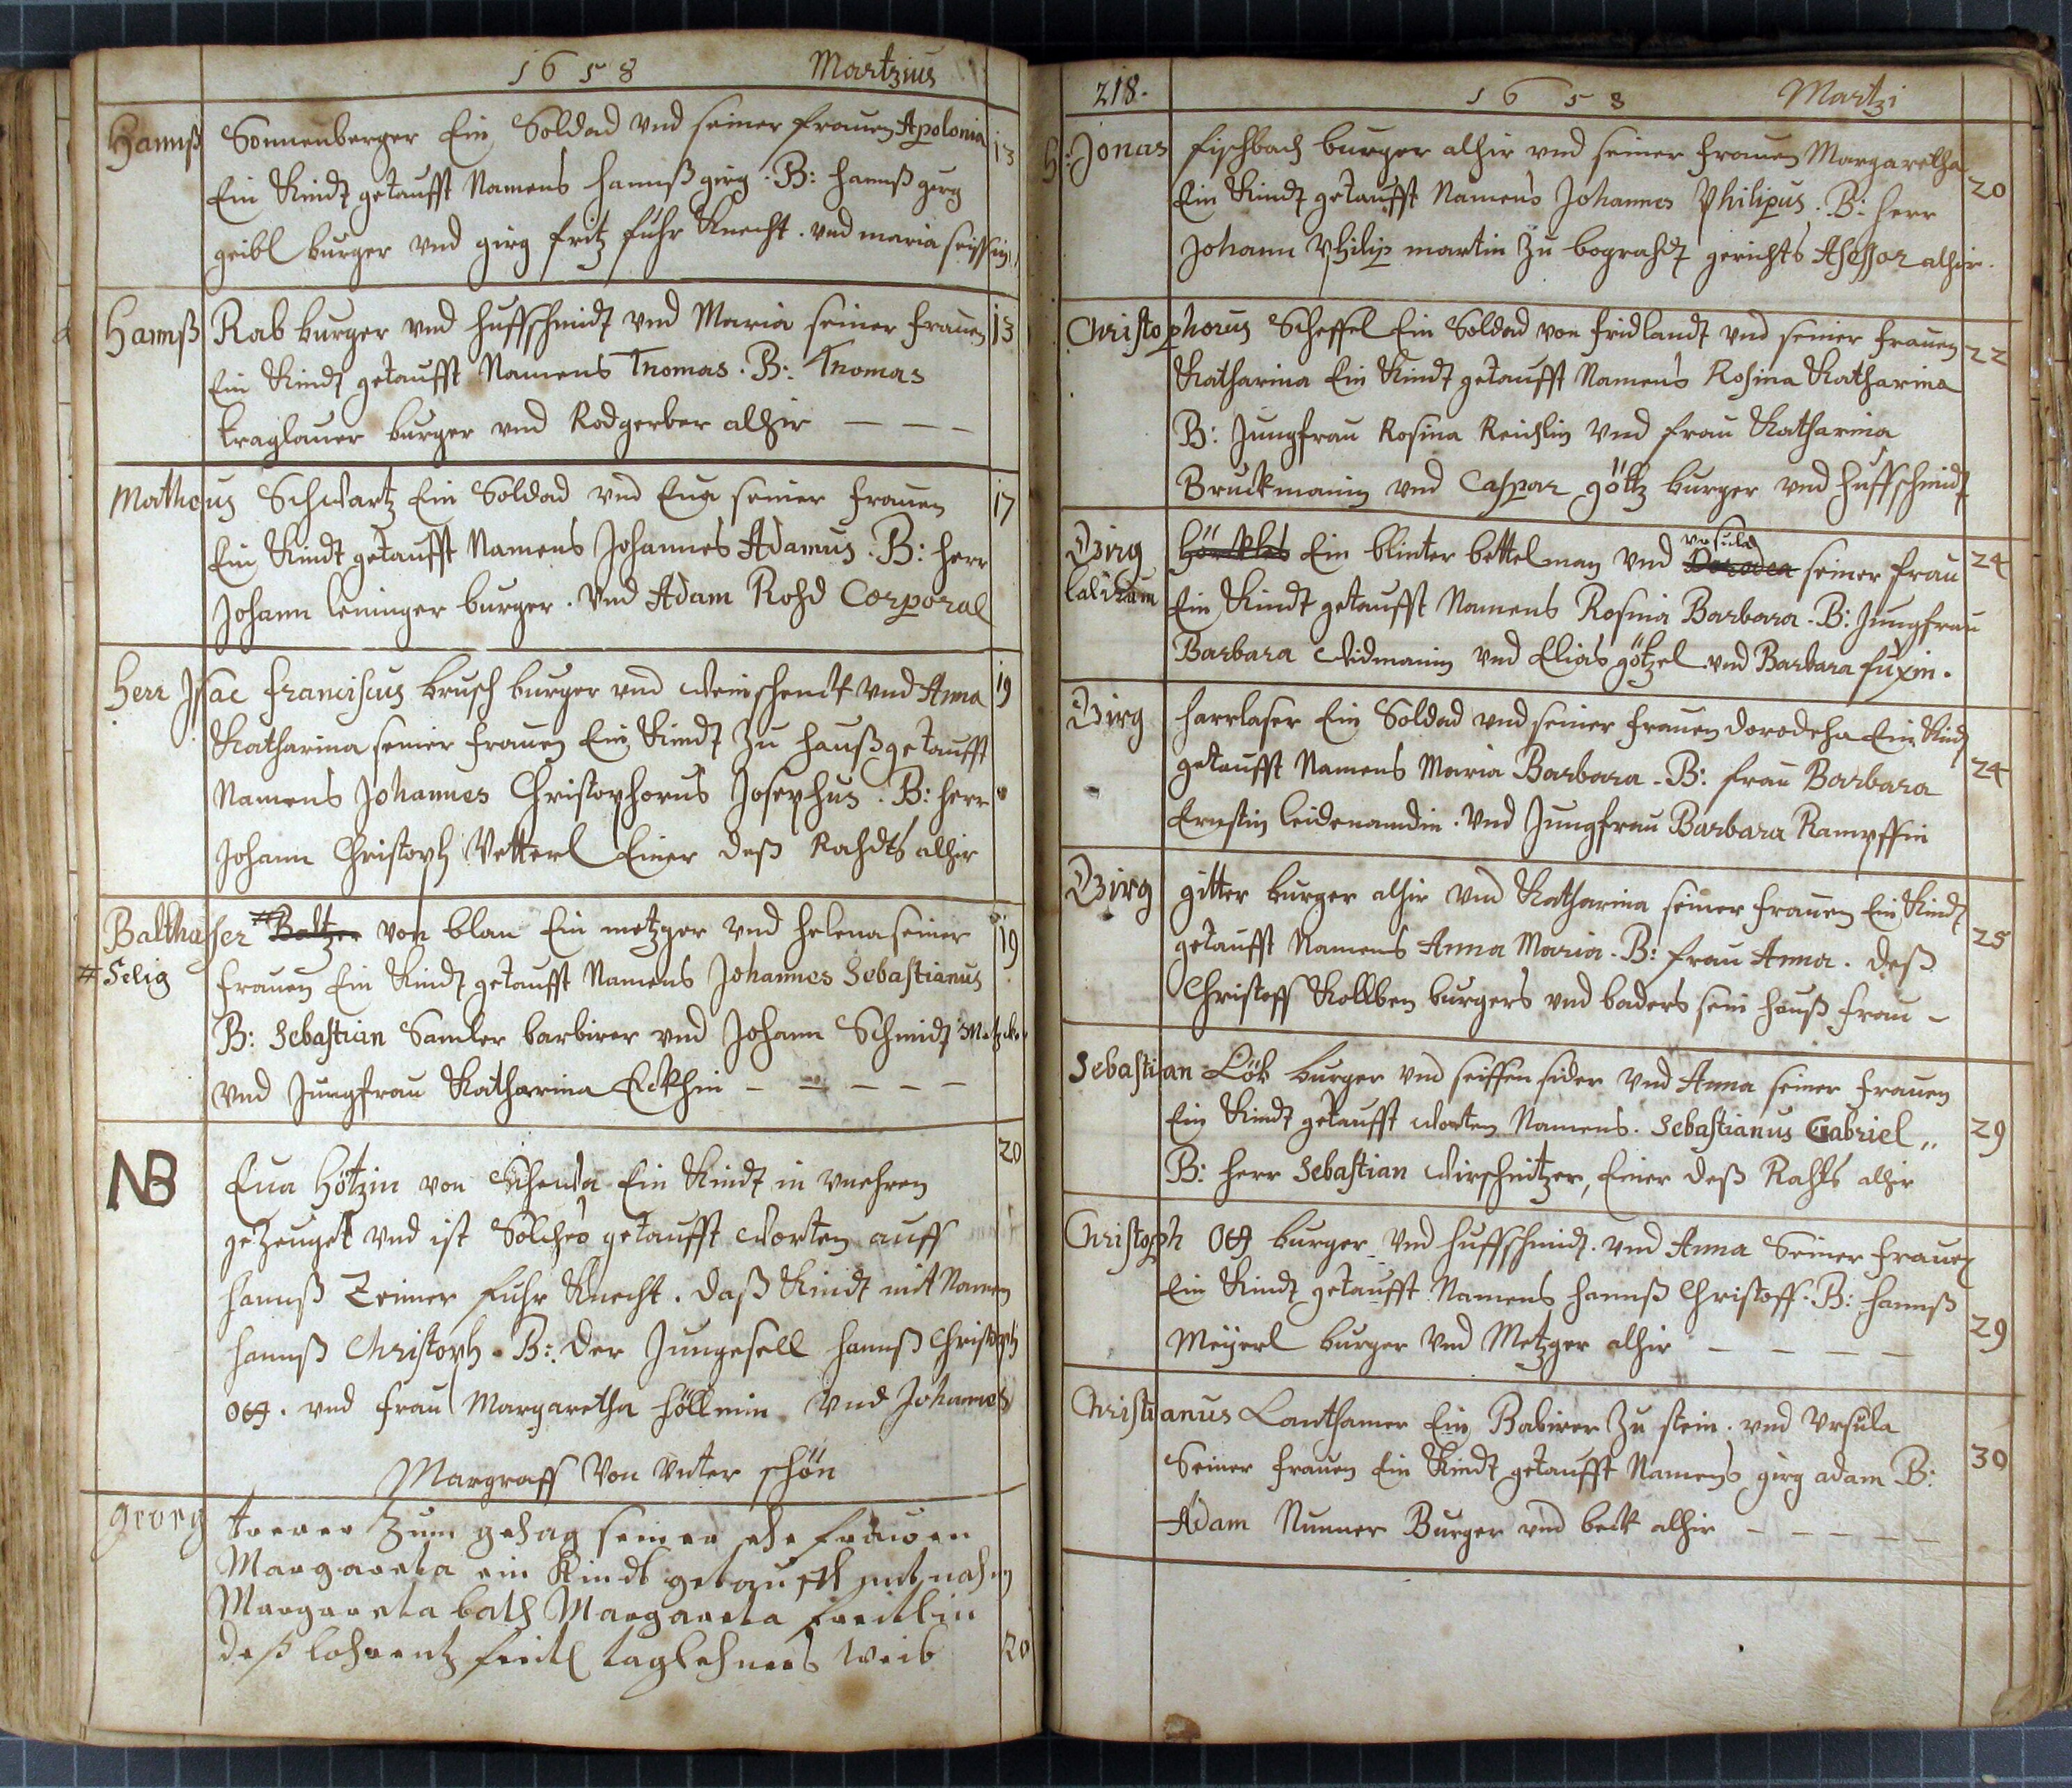 1658 Martzius
Hannß Sonnenberger Ein Soldad vnd seiner frauen Apolonia 13
Ein Kindt getaufft Namens hannß girg. B: hannß girg
geibl burger vnd girg fritz fuhr Knecht. vnd maria
Hannß Rab burger vnd huffschmidt vnd Maria seiner frauen 13
Ein Kindt getaufft Namens Thomas. B: Thomas
traglauer burger vnd Rodgerber alhir – – –
Matheus Schwartz Ein Soldad vnd Eua seiner frauen 17
Ein Kindt getaufft Namens Johannes Adamus. B: herr
Johann leninger burger. vnd Adam Rohd Corporal
Herr Isac franciscus brusch burger vnd weinschenck vnd Anna 19
Katharina seiner frauen Ein Kindt Zu hauß getaufft
Namens Johannes Christophorus Josephus. B: herr
Johann Christoph Vetterl Einer deß Rahdts alhir
Balthasser # Baltzer von blan Ein metzger vnd helena seiner 19
# Selig frauen Ein Kindt getaufft Namens Johannes Sebastianus
B: Sebastian Samler barbirer vnd Johann Schmidt
vnd Jungfrau Katharina Eckhin – – – – –
20
NB Eua Hötzin von Ein Kindt in vnehren
geZeuget vnd ist Solches getaufft worten auff
hannß Zeimer fuhr Knecht. daß Kindt mit Namen
hannß Christoph. B: der Jungesell hannß Christoph
Ott. vnd frau Margaretha höllmin. vnd Johannes
Margraff Von vnter schön
georg trerer zum gehag seiner ehe frauen
Margareta ein Kindt getaufft mit nahmen
Margareta bath Margareta feitlin
deß lohrentz feitl taglehners weib 20
218. 1658 Martzi
H: Jonas fischbach burger alhir vnd seiner frauen Margaretha 20
Ein Kindt getaufft Namens Johannes Philipus. B: herr
Johann Philip martin Zu gerichts Asessor alhir.
Christophorus Scheffel Ein Soldad von fridlandt vnd seiner frauen 22
Katharina Ein Kindt getaufft Namens Rosina Katharina
B: Jungfrau Rosina Reichlin vnd frau Katharina
Bruckmanin vnd Caspar göltz burger vnd huffschmidt
Girg Ein blinter bettelman vnd Dorodea vrsula seiner frau 24
Ein Kindt getaufft Namens Rosina Barbara. B: Jungfrau
Barbara widmanin vnd Elias götzel vnd Barbara fuxin.
Girg harrlaser Ein Soldad vnd seiner frauen dorodeha Ein Kindt
getaufft Namens Maria Barbara. B: frau Barbara 24
Ernstin leidenamdin. vnd Jungfrau Barbara Rampffin
Girg gitter burger alhir vnd Katharina seiner frauen Ein Kindt 25
getaufft Namens Anna Maria. B: frau Anna. deß
Christoff Kollben burgers vnd baders sein hauß frau –
Sebastian Lök burger vnd seiffen sider vnd Anna seiner frauen
Ein Kindt getaufft worten Namens. Sebastianus Gabriel 29
B: herr Sebastian wirschnitzer, Einer deß Rahts alhir
Christoph Ott burger vnd huffschmidt. vnd Anna Seiner frauen
Ein Kindt getaufft Namens hannß Christoff. B: hannß
Meÿerl burger vnd Metzger alhir – – – – 29
Christianus Lanthamer Ein Babirer Zu stein. vnd Vrsula
Seiner frauen Ein Kindt getaufft Namens girg adam B: 30
Adam Nunner Burger vnd beck alhir – – – – –